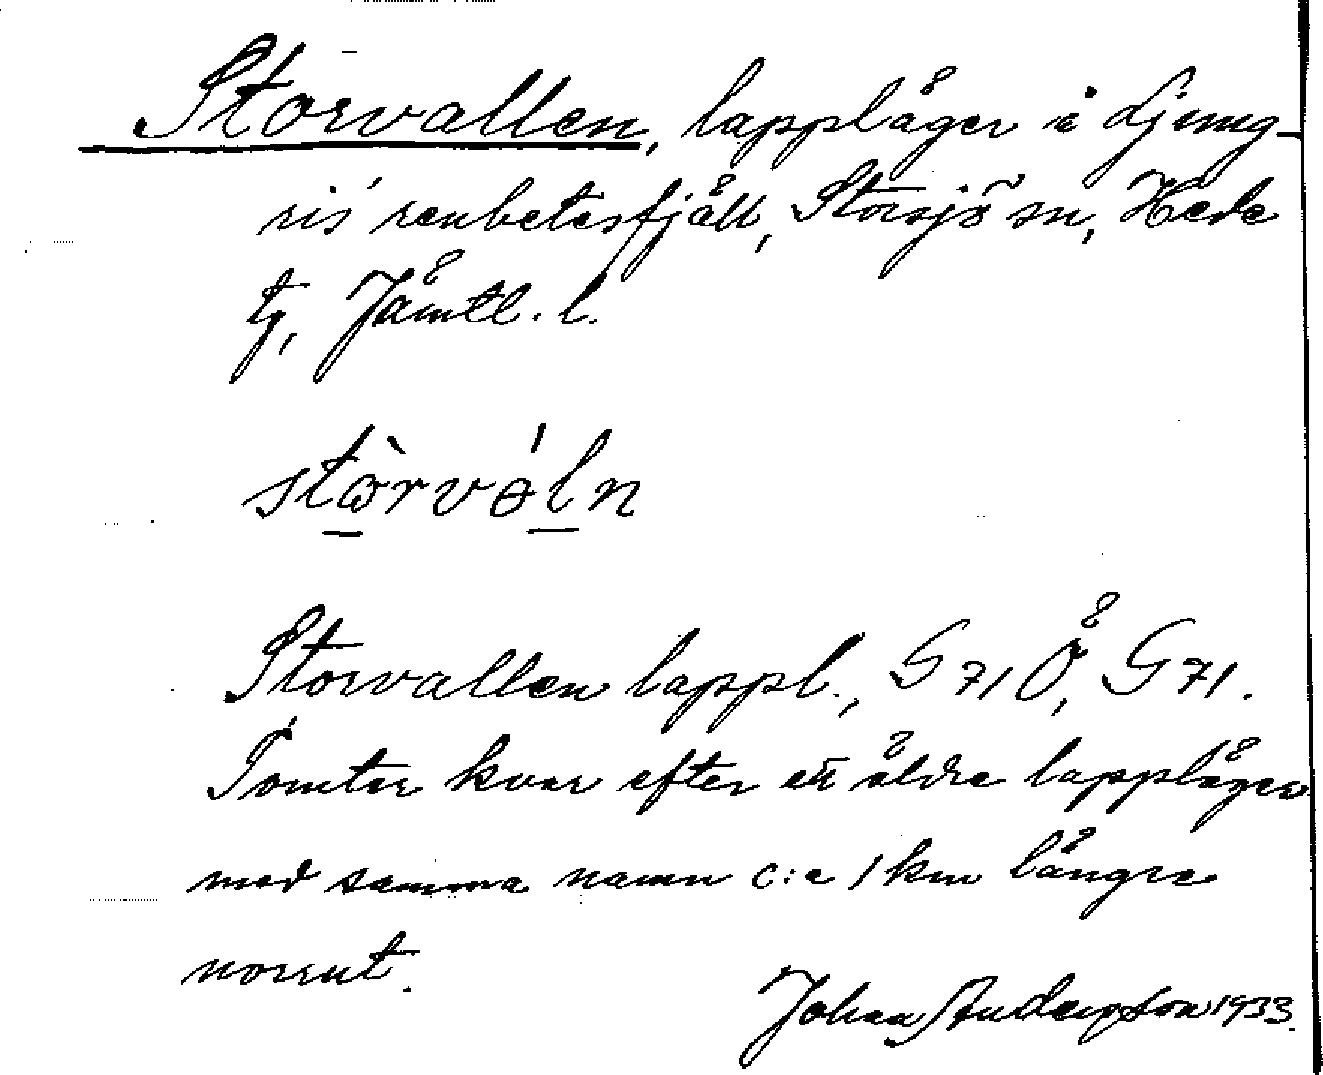 Storvallen, lappläger i Ljung-
ris' renbetesfjäll, Storsjö sn, Hede
tg, Jämtl. l.
stòrvóln
Storvallen lappl., G 71 Ö, G 71.
Tomter kvar efter ett äldre lappläger
med samma namn c:a 1 km längre
norrut.
Johan Anderson 1933.